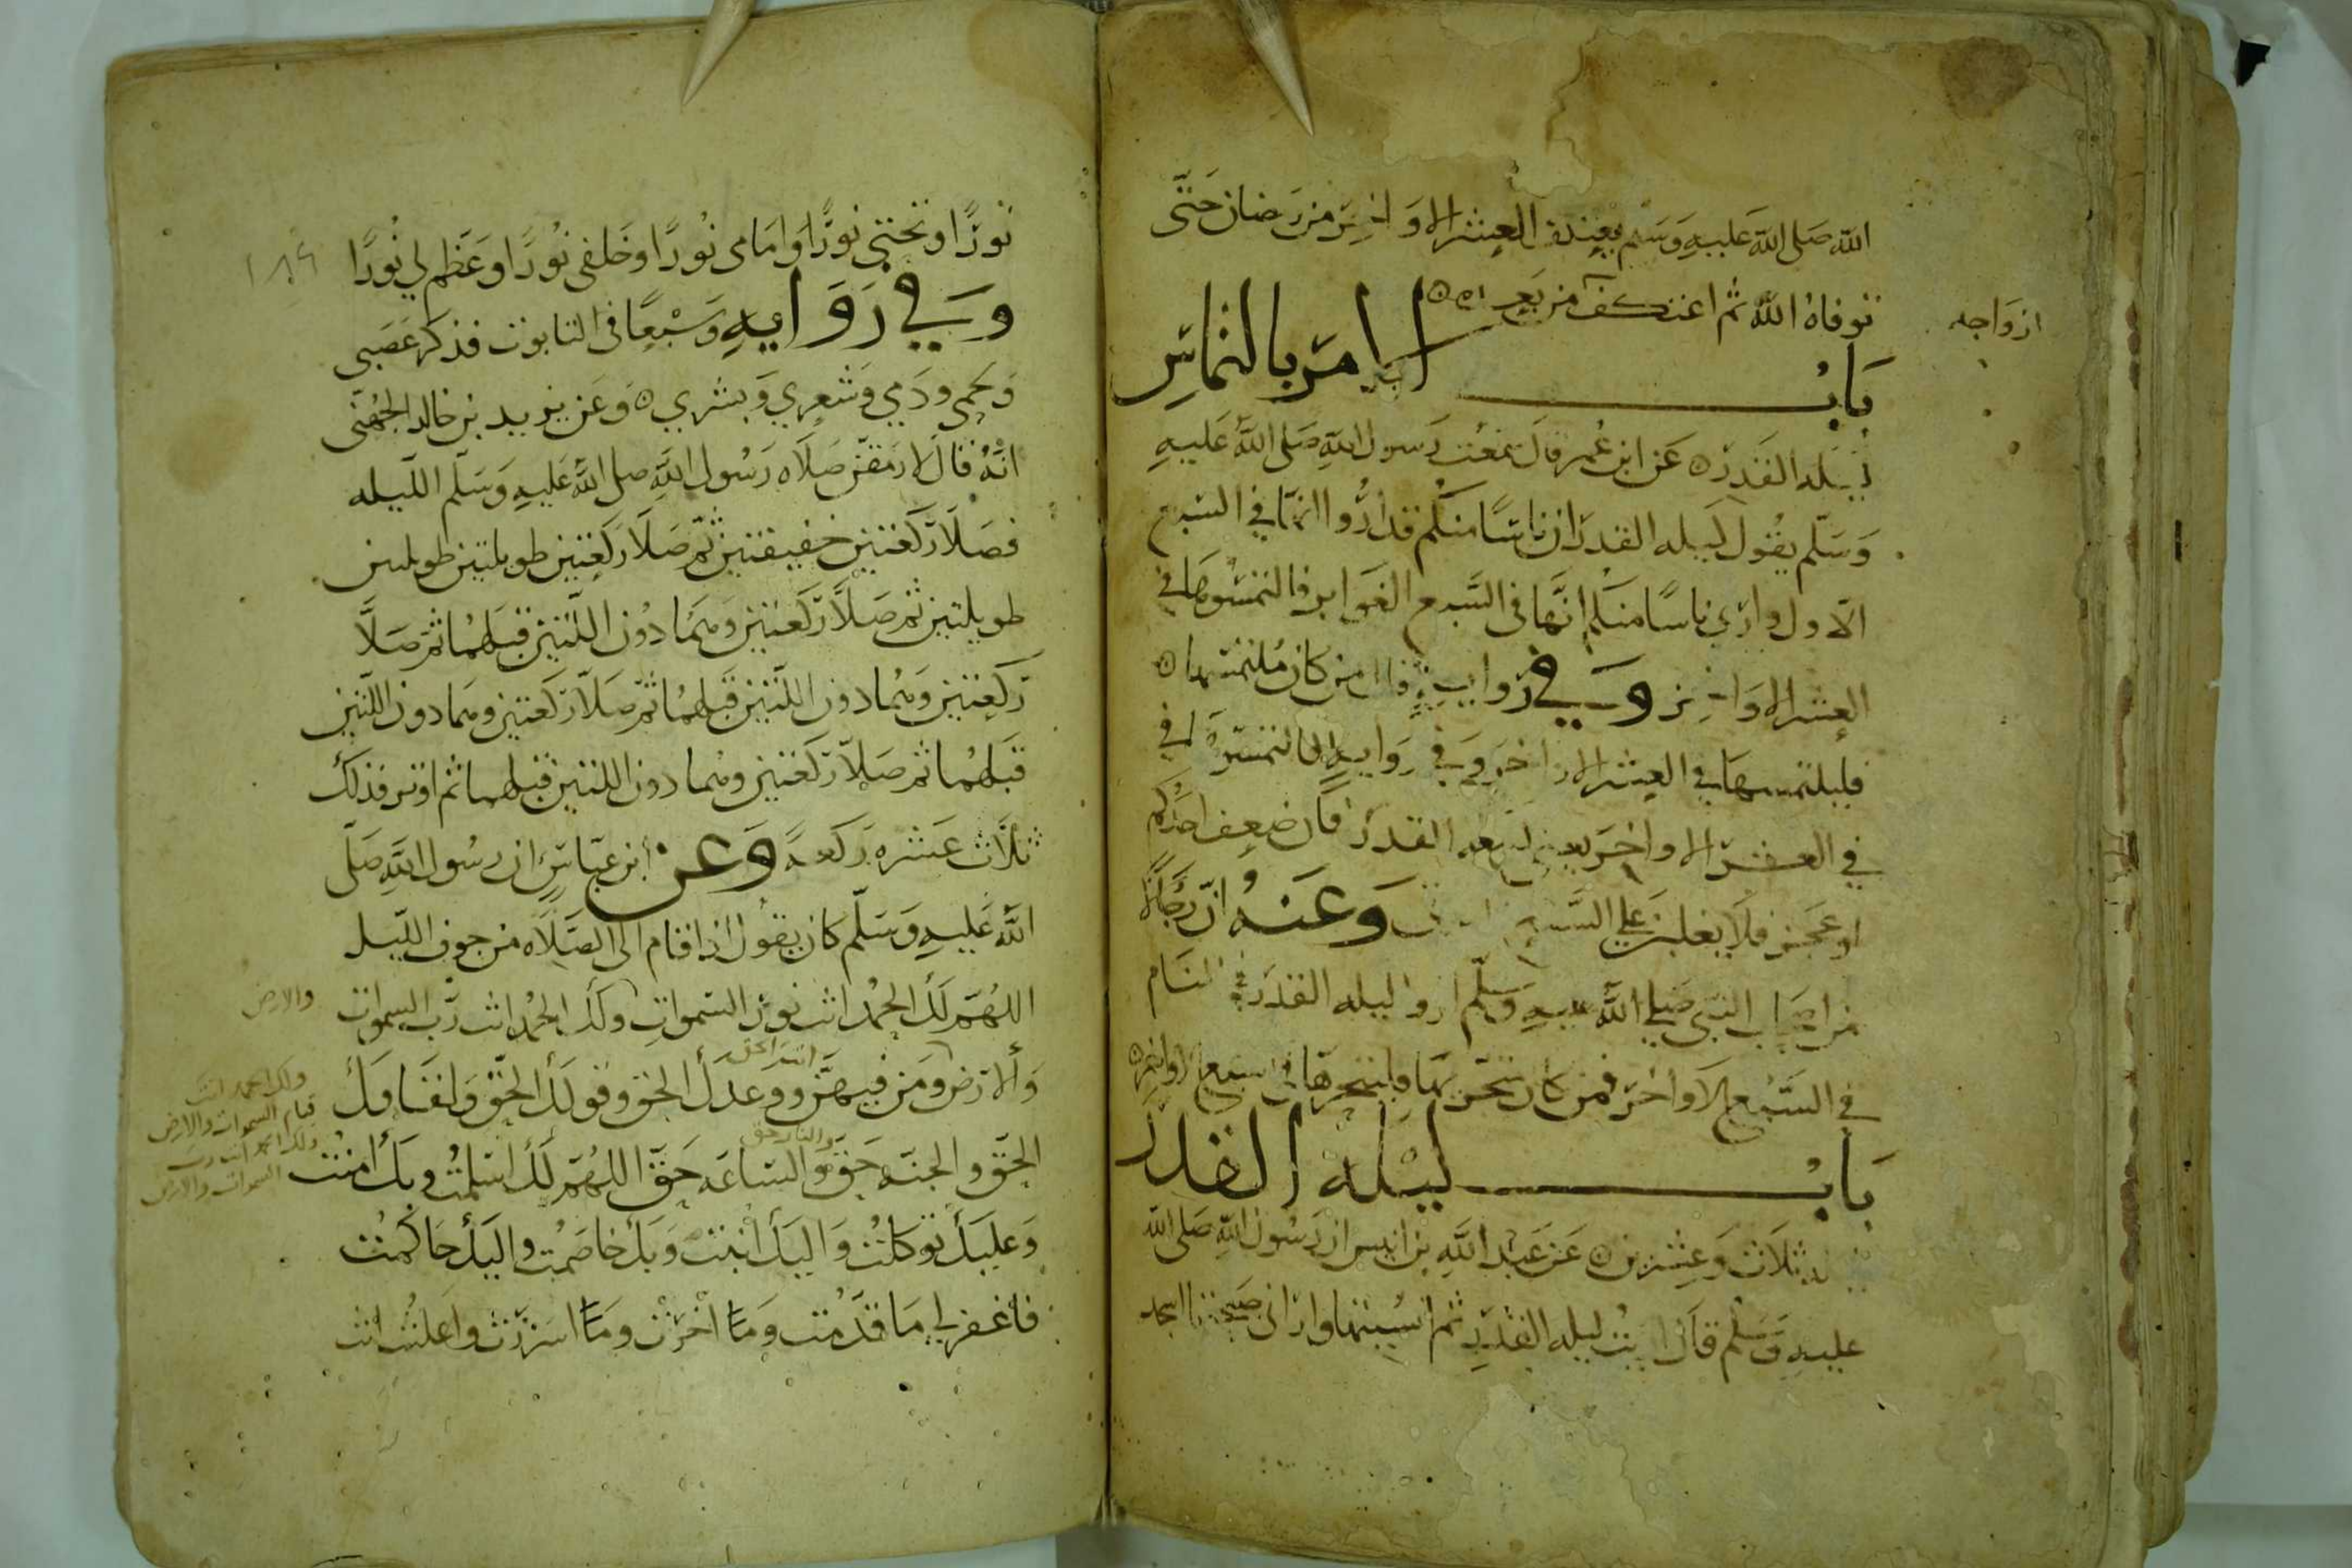 الله صلى الله عليه وسلم يعتكف العشر الاواخر من رمضان حتى
توفاه الله ثم اعتكف من بعده
ازواجه
باب الامر بالتماس
ليله القدر ٥ عن ابن عمر قال سمعت رسول الله صلى الله عليه
وسلم يقول لليله القدر ان ناسا منكم قد اروا انها في السبع
الاول واري ناسا منكم انها في السبع الغوابر فالتمسوها في
العشر الاواخر وفي روايه قال من كان ملتمسها ٥
فليلتمسها في العشر الاواخر وفي روايه التمسوها في
في العشر الاواخر يعني ليله القدر فان ضعف احدكم
او عجز فلا يغلبن على السبع وعنه ان رجالا
من اصحاب النبي صلى الله عليه وسلم اروا ليله القدر في المنام
في السبع الاواخر فمن كان متحريها فليتحرها في السبع الاواخر ٥
باب ليله القدر
ليله ثلاث وعشرين ٥ عن عبد الله بن انيس ان رسول الله صلى الله
عليه وسلم قال اريت ليله القدر ثم انسيتها واراني صبحتها اسجد
١٨٦
نورا وتحتي نورا وامامي نورا وخلفي نورا وعظم لي نورا
وفي روايه وسبعا في التابوت فذكر عصبي
ولحمي ودمي وشعري وبشري ٥ وعن يزيد بن خالد الجهني
انه قال لارمقن صلاه رسول الله صلى الله عليه وسلم الليله
فصلا ركعتين خفيفتين ثم صلا ركعتين طويلتين طويلتين
طويلتين ثم صلا ركعتين وهما دون اللتين قبلهما ثم صلا
ركعتين وهما دون اللتين قبلهما ثم صلا ركعتين وهما دون اللتين
قبلهما ثم صلا ركعتين وهما دون اللتين قبلهما ثم اوتر فذلك
ثلاث عشره ركعة وعن ابن عباس ان رسول الله صلى
الله عليه وسلم كان يقول اذا قام الى الصلاه من جوف الليل
اللهم لك الحمد انت نور السموات ولك الحمد انت رب السموات
والارض
والارض ومن فيهن ووعدك الحق وقولك الحق ولقاوك
انت الحق
ولك الحمد انت
قيام السموات والارض
ولك الحمد انت رب
السموات والارض
الحق والجنه حق والساعه حق اللهم لك اسلمت وبك امنت
والنار حق
وعليك توكلت واليك انبت وبك خاصمت واليك حاكمت
فاغفر لي ما قدمت وما اخرت وما اسررت واعلنت انت